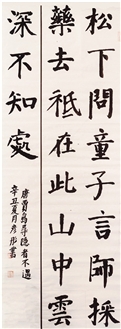 松下問童子言師採
藥去祇在此山中雲
深不知處
唐賈島尋隱者不遇
辛丑夏月書